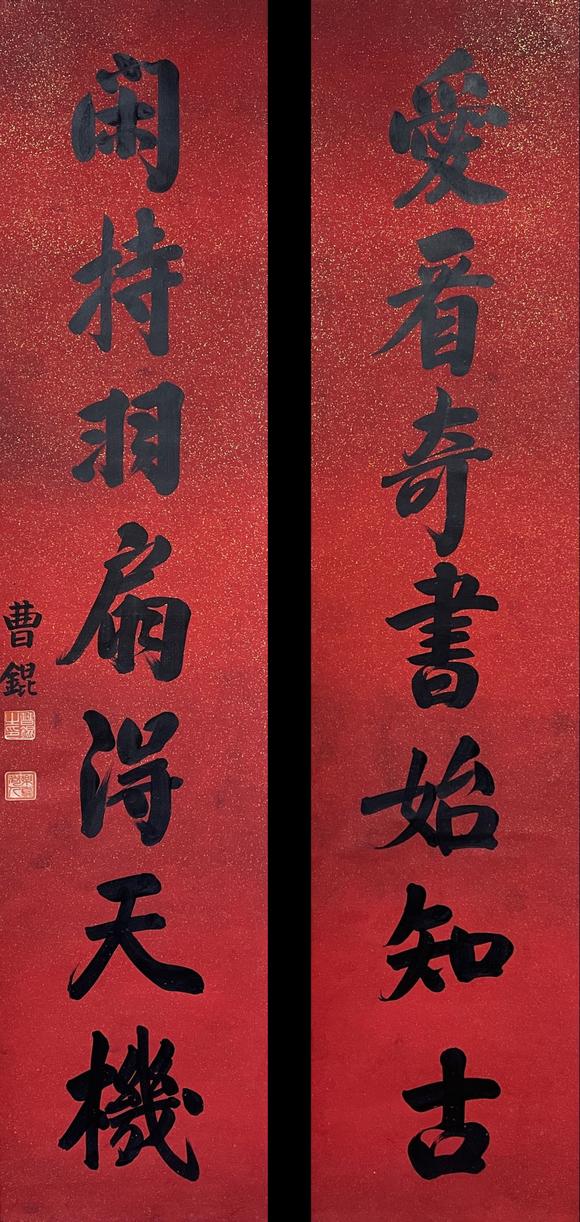 愛看奇書始知古
閑持羽扇得天機
曹錕